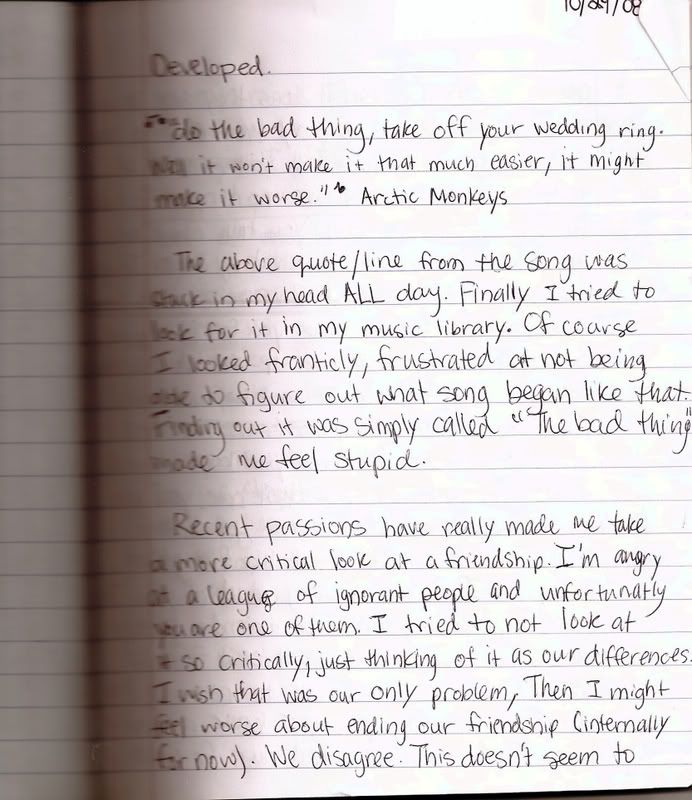 10/29/08
Developed.
"do the bad thing, take off your wedding ring.
Well it won't make it that much easier, it might
make it worse." Arctic Monkeys
The above quote/line from the song was
stuck in my head ALL day. Finally I tried to
look for it in my music library. Of course
I looked franticly, frustrated at not being
able to figure out what song began like that.
Finding out it was simply called "The bad thing"
made me feel stupid.
Recent passions have really made me take
a more critical look at a friendship. I'm angry
at a league of ignorant people and unfortunatly
you are one of them. I tried to not look at
it so critically, just thinking of it as our differences.
I wish that was our only problem, Then I might
feel worse about ending our friendship (internally
for now). We disagree. This doesn't seem to